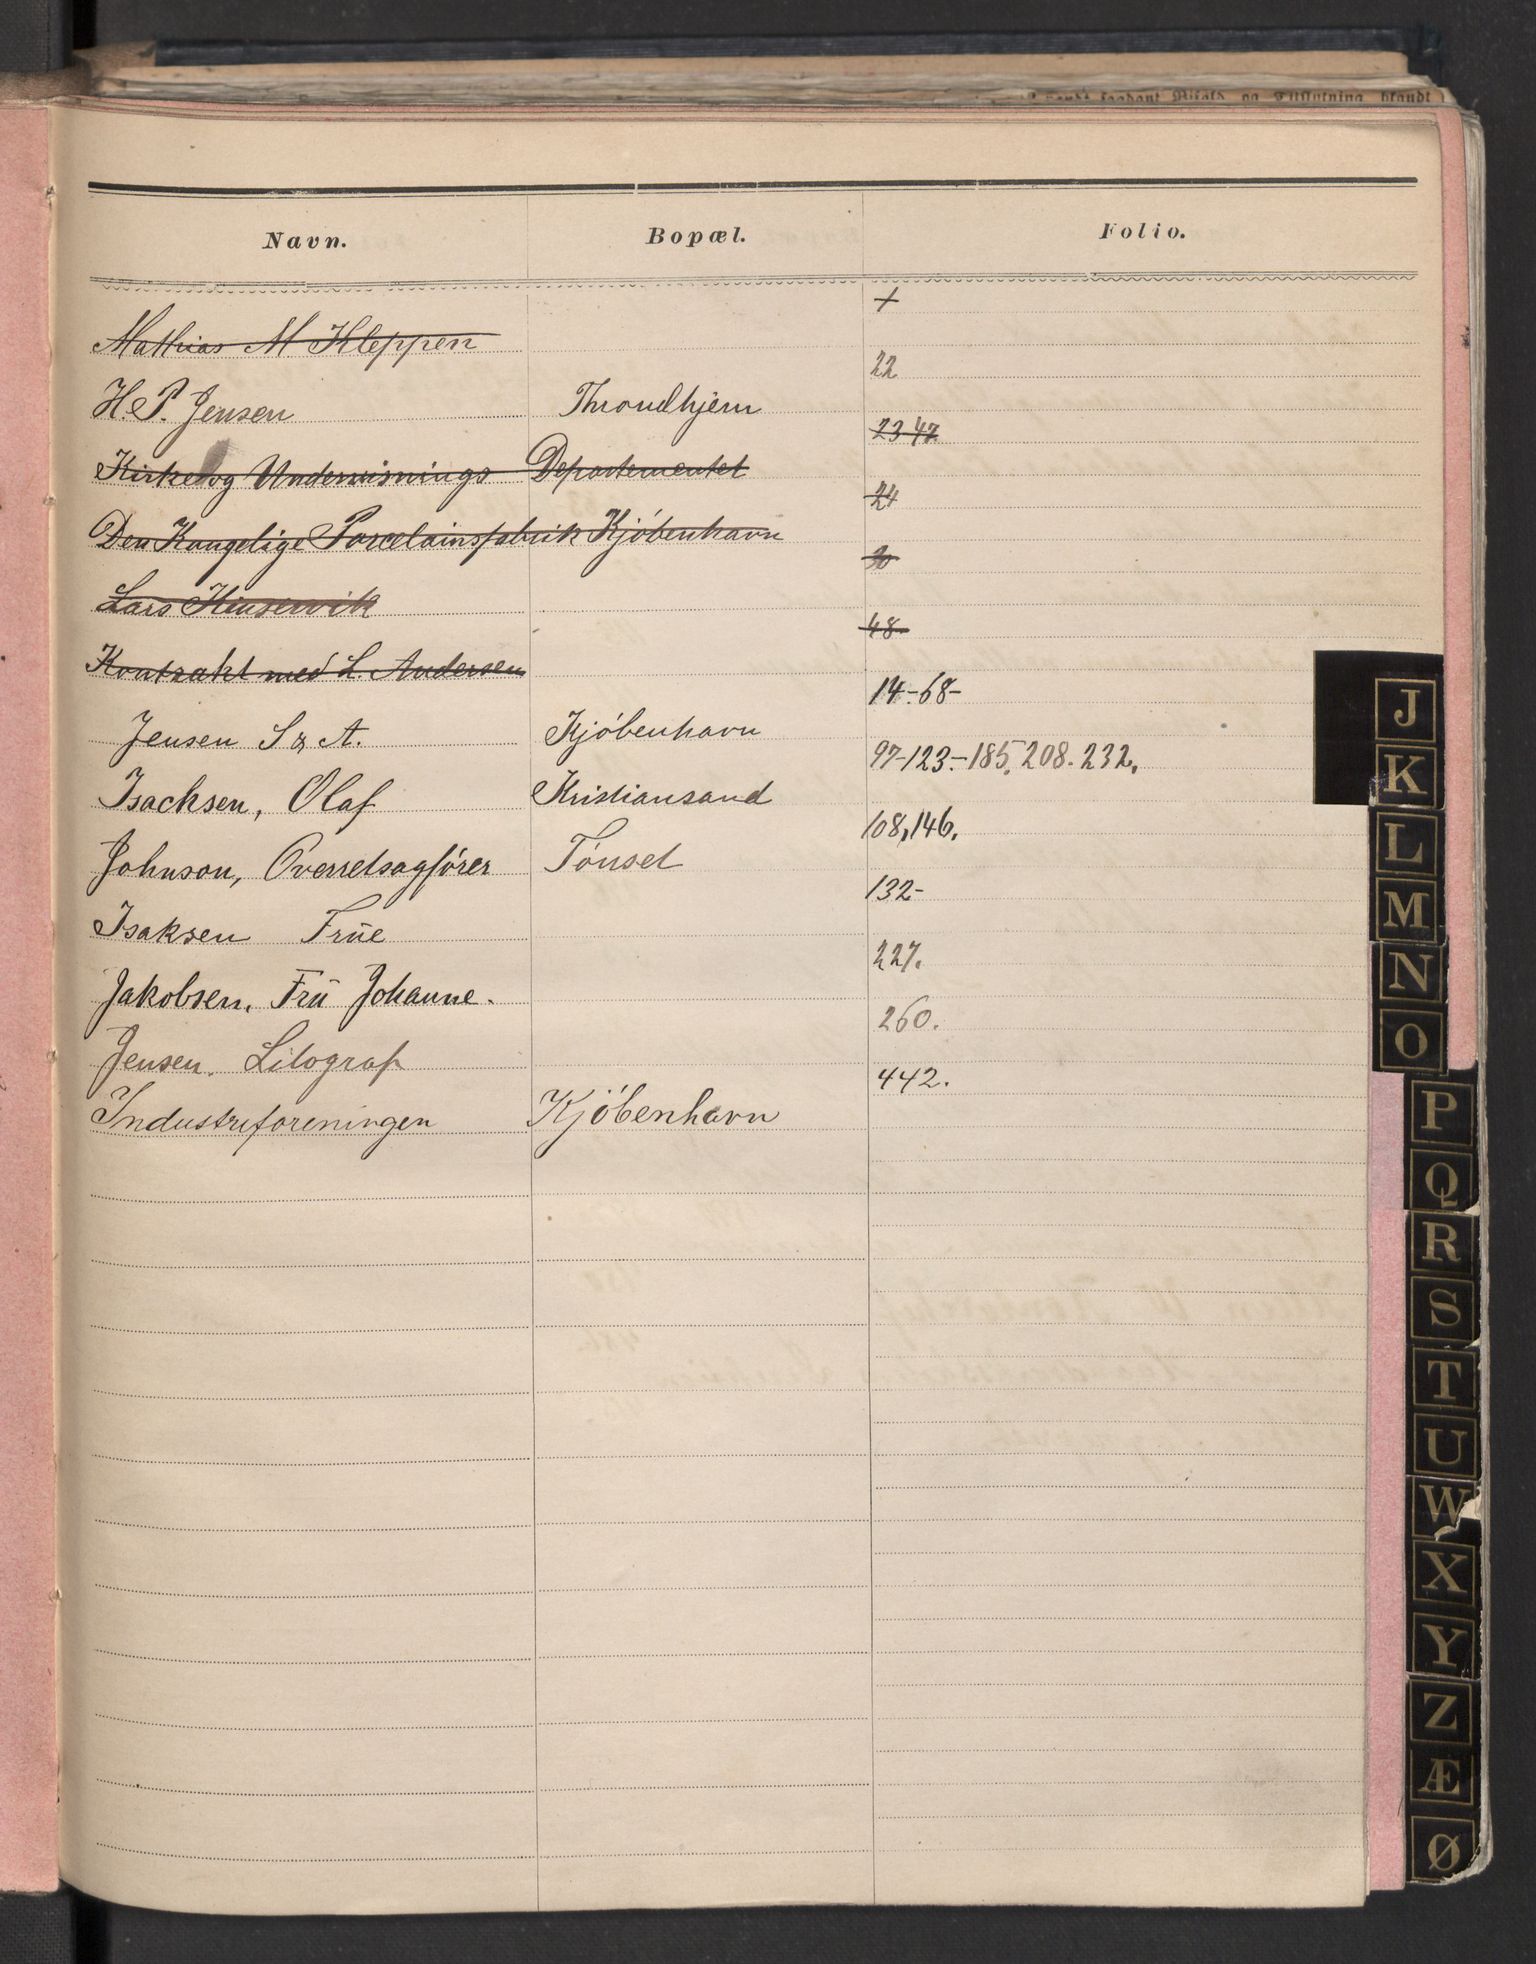 Navn. Bopæl. Folio.
Mathias M Kleppen +
H. P. Jensen Throndhjem 22
Kirke og Undervisnings Departementet 23 47
Den Kongelige Porcelainsfabrik Kjöbenhavn 24
Lars Kinservik 30
Kontrakt med L. Andersen 48
Jensen S & A. Kjöbenhavn 14-68-
Isachsen, Olaf Kristiansand 97-123-185, 208. 232,
Johnson, Overretsagförer Tönset 108, 146,
Isaksen Frue 132-
Jakobsen, Fru Johanne. 227.
Jensen. Litograf 260.
Industriforeningen Kjöbenhavn 442.
J
K
L
M
N
O
P
Q
R
S
T
U
W
X
Y
Z
Æ
Ø